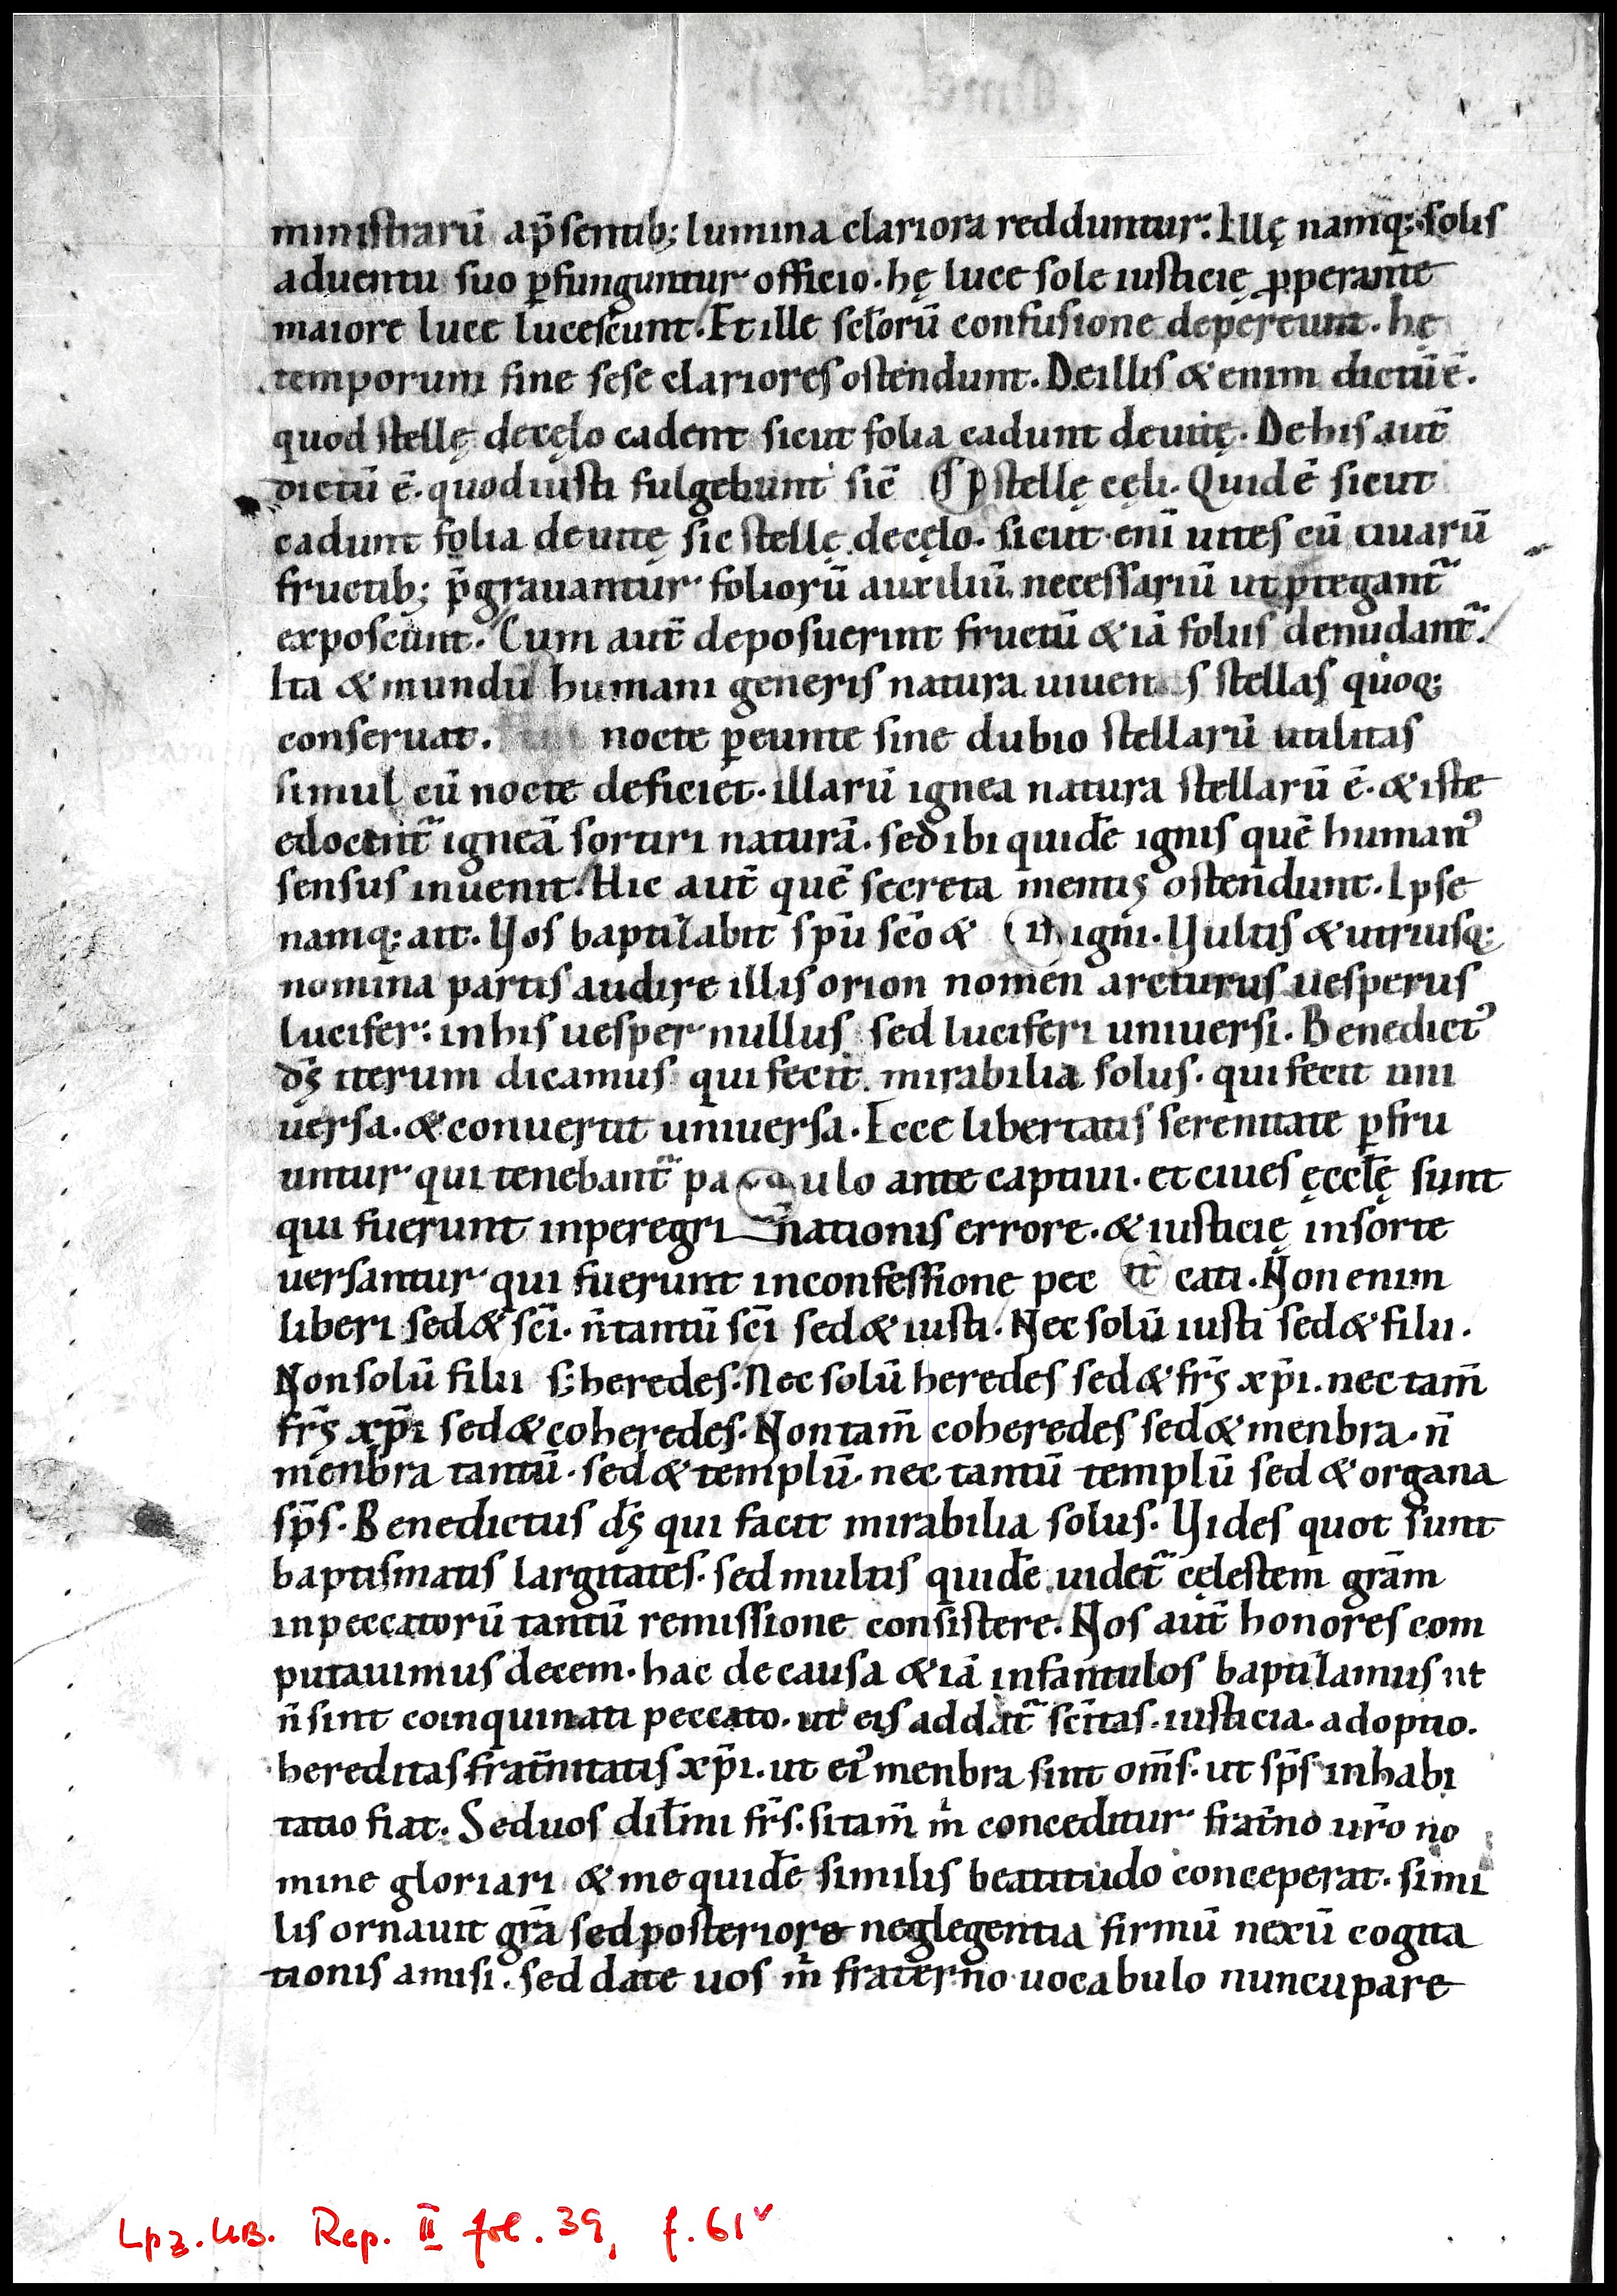 ministrarū ap̄sentib; lumina clariora redduntur. Illę namq; solis
aduentu suo ꝑfunguntur officio. hę luce sole iusticię ꝓperante
maiore luce lucescunt. Et ille scłorū confusione depereunt. hę
temporum fine sese clariores ostendunt. De illis & enim dictū ē.
quod stellę de cęlo cadent sicut folia cadunt de uite. De his aut̄
dictū ē. quod iusti fulgebunt sic̄ stellę cęli. Quid ē sicut
cadunt folia de uite sic stellę de cęlo. sicut enī uites cū uuarū
fructib; p̄grauantur foliorū auxiliū necessariū ut ꝓtegant᷑
exposcunt. Cum aut̄ deposuerint fructū & iā foliis denudant᷑.
Ita & mundū humani generis natura uiuens stellas quoq;
conseruat. nocte ꝑeunte sine dubio stellarū utilitas
simul cū nocte deficiet. illarū ignea natura stellarū ē. & iste
edocent᷑ igneā sortiri naturā. sed ibi quidē ignis quē humanꝰ
sensus inuenit. Hic aut̄ quē secreta mentis ostendunt. Ipse
namq; ait. Vos baptizabit sp̄u sc̄o & igni. Vultis & utriusq;
nomina partis audire illis orion nomen arcturus uesperus
lucifer: in his uesper nullus sed luciferi uniuersi. Benedictꝰ
ds̄ iterum dicamus qui fecit mirabilia solus. qui fecit uni
uersa. & conuertit uniuersa. Ecce libertatis serenitate ꝑfru
untur qui tenebant᷑ pa ulo ante captiui. et ciues ęccłę sunt
qui fuerunt in peregri nationis errore. & iusticię in sorte
uersantur qui fuerunt in confessione pec cati. Non enim
liberi sed & sc̄i. n̄ tantū sc̄i sed & iusti. Nec solū iusti sed & filii.
Non solū filii s; heredes. Nec solū heredes sed & frs̄ xp̄i. nec tam̄
frs̄ xp̄i sed & coheredes. Non tam̄ coheredes sed & menbra. n̄
menbra tantū. sed & templū. nec tantū templū sed & organa
sp̄s. Benedictus ds̄ qui facit mirabilia solus. Vides quot sunt
baptismatis largitates. sed multis quidē uidet᷑ cęlestem grām
in peccatorū tantū remissione consistere. Nos aut̄ honores com
putauimus decem. hac de causa & iā infantulos baptizamus ut
n̄ sint coinquinati peccato. ut eis addat᷑ sc̄itas. iusticia. adoptio.
hereditas frat̄nitatis xp̄i. ut eiꝰ menbra sint om̄s. ut sp̄s inhabi
tatio fiat. Sed uos dilm̄i frs̄. si tam̄ m̄ conceditur frat̄no ur̄o no
mine gloriari & me quidē similis beatitudo conceperat. simi
lis ornauit grā sed posteriore neglegentia firmū nexū cogita
tionis amisi. sed date uos m̄ fraterno uocabulo nuncupare
Lpz. UB. Rep. II fol. 39, f. 61v